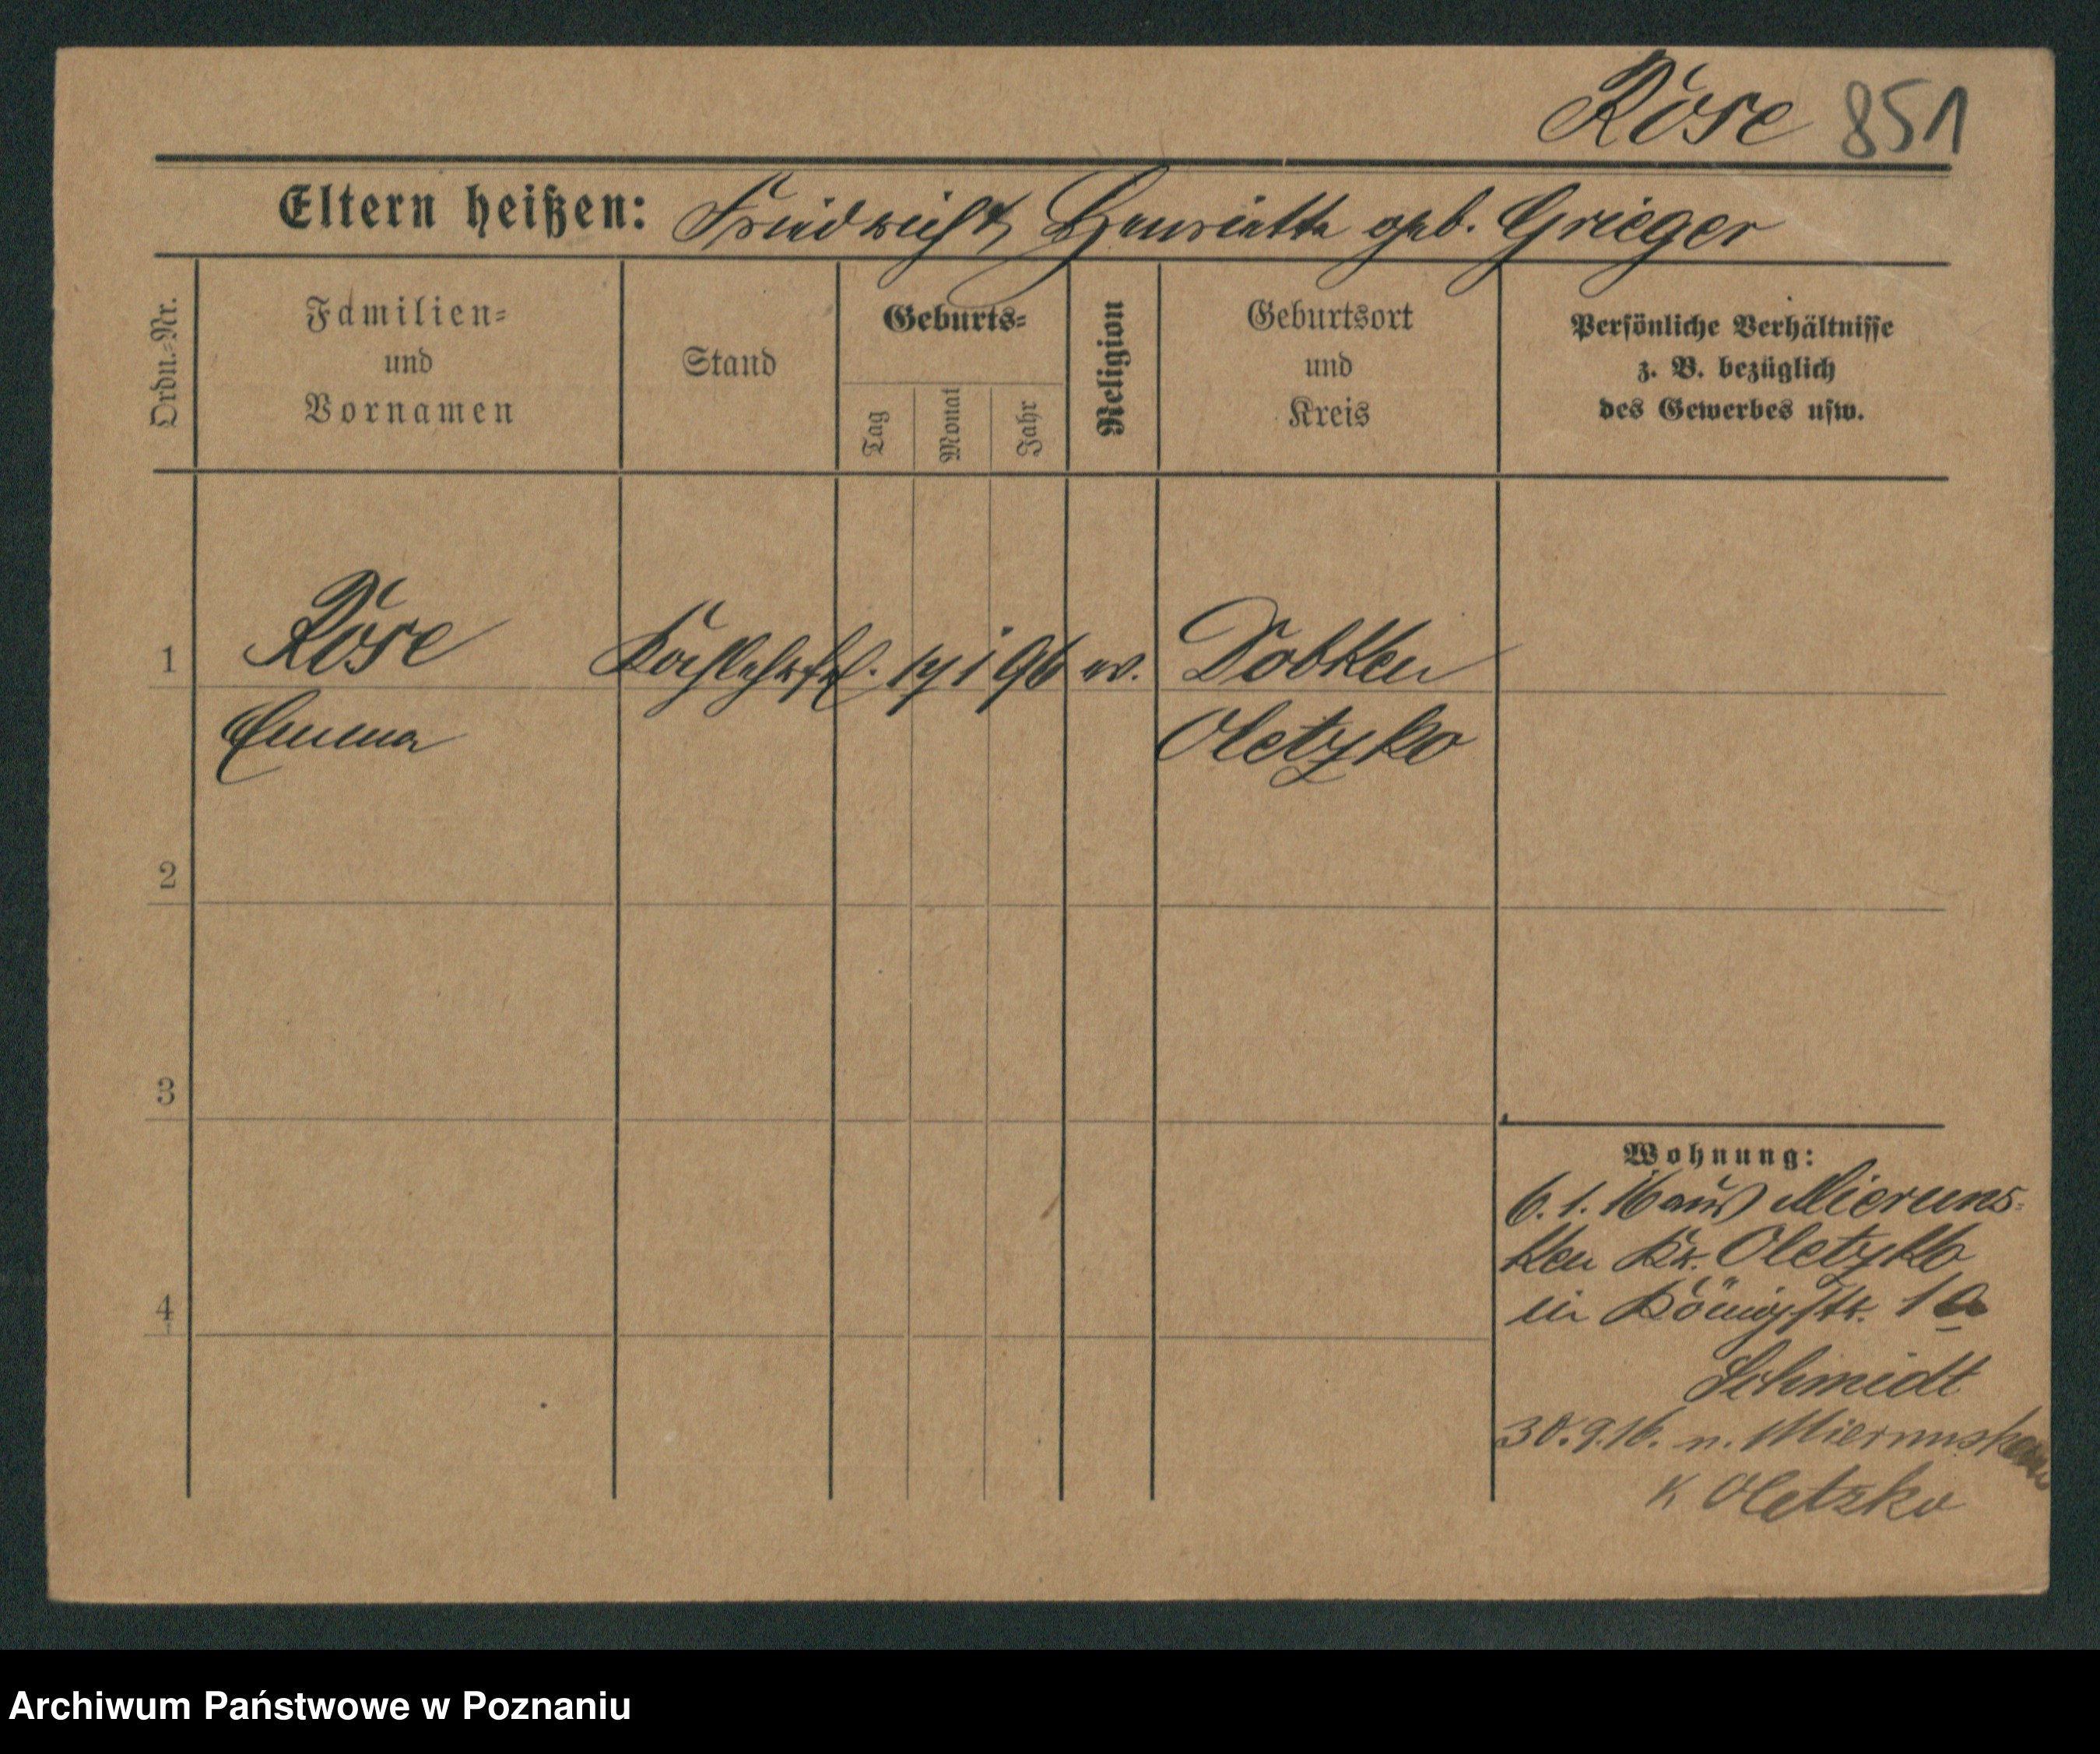 Röse 851
Eltern heißen: Friedrich, Henriette geb. Grieger
Ordn.-Nr.
Familien-
und
Vornamen
Stand
Geburts-
Tag
Monat
Jahr
Religion
Geburtsort
und
Kreis
Persönliche Verhältnisse
z. B. bezüglich
des Gewerbes usw.
1 Röse Kochlehrfrl. 19 1 96 ev. Dobken
Emma Oletzko
2
3
4
Wohnung:
6. 1. 16 aus Mieruns-
ken Kr. Oletzko
in Königstr. 1a
Schmidt
30.9.16. n. Mierunsken
K Oletzko
Archiwum Państwowe w Poznaniu